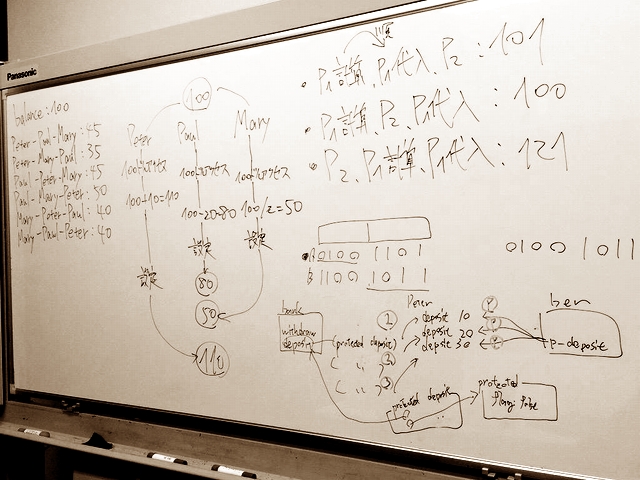 Panasonic
balance:100
Peter-Paul-Mary:45
Peter-Mary-Paul:35
Paul-Peter-Mary:45
Paul-Mary-Peter:50
Mary-Peter-Paul:40
Mary-Paul-Peter:40
100
Peter Paul Mary
100へアクセス 100へアクセス 100へアクセス
100+10=110
100-20=80
100/2=50
設定
設定
設定
80
50
110
・P1計算、P1代入、P2:101
・P1計算、P2、P1代入:100
・P2、P1計算、P1代入:121
A 0100 1101
B 1100 1011
0100 1011
bank
withdraw
deposit
(protected deposit)
Peter
deposit 10
deposit 20
deposit 30
ber
p-deposit
protected deposit
protected